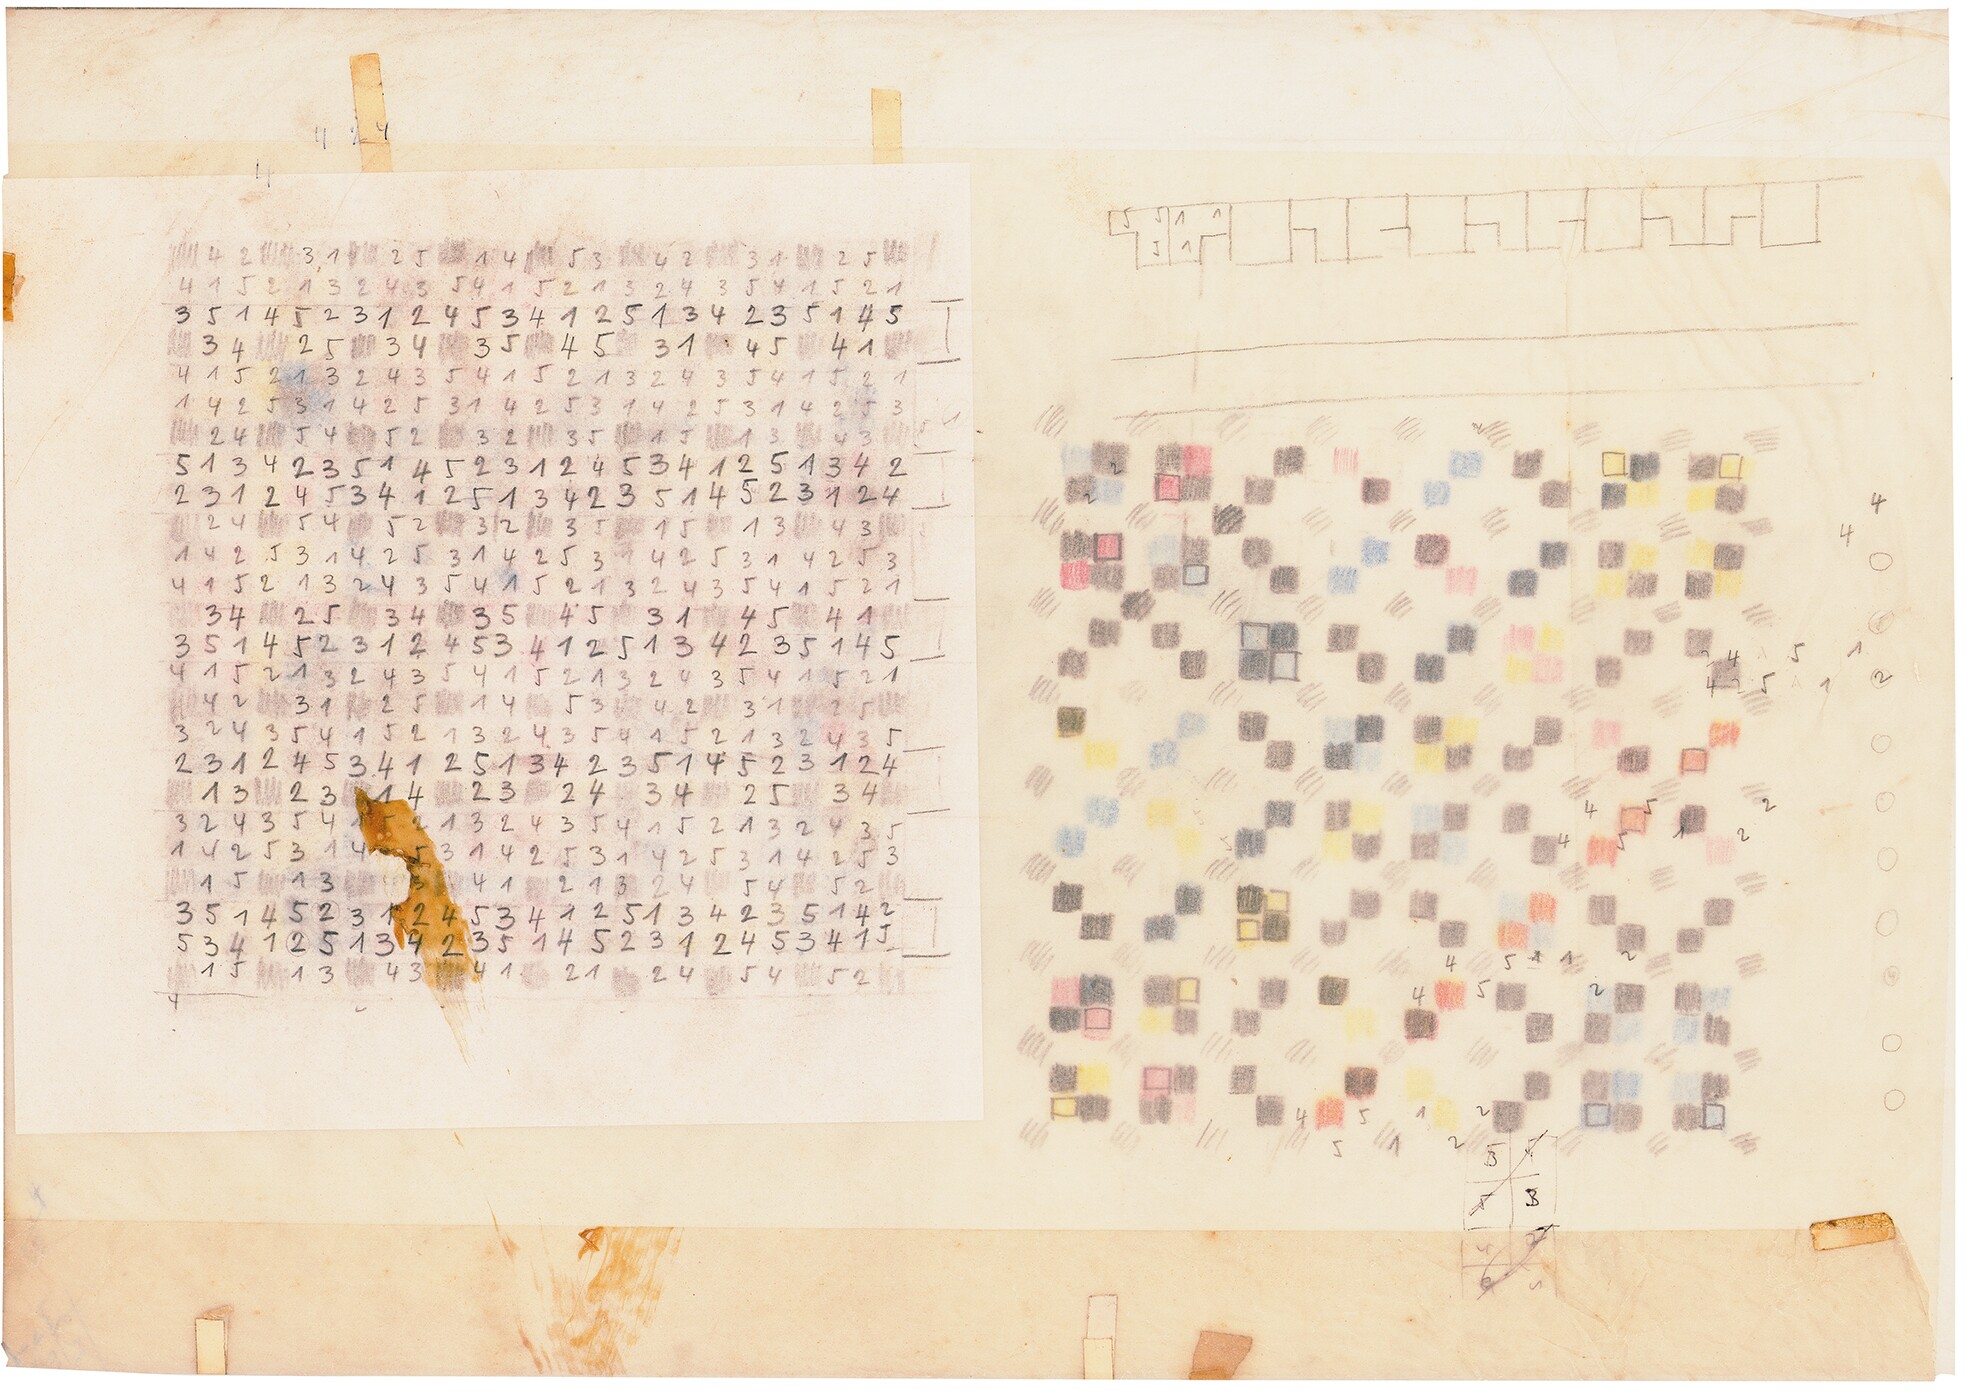 4 2 4
4
4 2 3 1 2 5 1 4 5 3 4 2 3 1 2 5
4 1 5 2 1 3 2 4 3 5 4 1 5 2 1 3 2 4 3 5 4 1 5 2 1
3 5 1 4 5 2 3 1 2 4 5 3 4 1 2 5 1 3 4 2 3 5 1 4 5
3 4 2 5 3 4 3 5 4 5 3 1 4 5 4 1
4 1 5 2 1 3 2 4 3 5 4 1 5 2 1 3 2 4 3 5 4 1 5 2 1
1 4 2 5 3 1 4 2 5 3 1 4 2 5 3 1 4 2 5 3 1 4 2 5 3
2 4 5 4 5 2 3 2 3 5 1 5 1 3 4 3
5 1 3 4 2 3 5 1 4 5 2 3 1 2 4 5 3 4 1 2 5 1 3 4 2
2 3 1 2 4 5 3 4 1 2 5 1 3 4 2 3 5 1 4 5 2 3 1 2 4
2 4 5 4 5 2 3 2 3 5 1 5 1 3 4 3
1 4 2 5 3 1 4 2 5 3 1 4 2 5 3 1 4 2 5 3 1 4 2 5 3
4 1 5 2 1 3 2 4 3 5 4 1 5 2 1 3 2 4 3 5 4 1 5 2 1
3 4 2 5 3 4 3 5 4 5 3 1 4 5 4 1
3 5 1 4 5 2 3 1 2 4 5 3 4 1 2 5 1 3 4 2 3 5 1 4 5
4 1 5 2 1 3 2 4 3 5 4 1 5 2 1 3 2 4 3 5 4 1 5 2 1
4 2 3 1 2 5 1 4 5 3 4 2 3 1 2 5
3 2 4 3 5 4 1 5 2 1 3 2 4 3 5 4 1 5 2 1 3 2 4 3 5
2 3 1 2 4 5 3 4 1 2 5 1 3 4 2 3 5 1 4 5 2 3 1 2 4
1 3 2 3 1 4 2 3 2 4 3 4 2 5 3 4
3 2 4 3 5 4 1 5 2 1 3 2 4 3 5 4 1 5 2 1 3 2 4 3 5
1 4 2 5 3 1 4 5 3 1 4 2 5 3 1 4 2 5 3 1 4 2 5 3
1 5 1 3 3 4 1 2 1 3 2 4 5 4 5 2
3 5 1 4 5 2 3 1 2 4 5 3 4 1 2 5 1 3 4 2 3 5 1 4 2
5 3 4 1 2 5 1 3 4 2 3 5 1 4 5 2 3 1 2 4 5 3 4 1 5
1 5 1 3 4 3 4 1 2 1 2 4 5 4 5 2
4
5 5 1 1
5 1
2
2
4
4
2 4 5 1
4 2 5 1 2
4 5 2
5 4 1 2
4 5 1 1 2
4 5 2
4 5 1 2
5 1 2
3
3